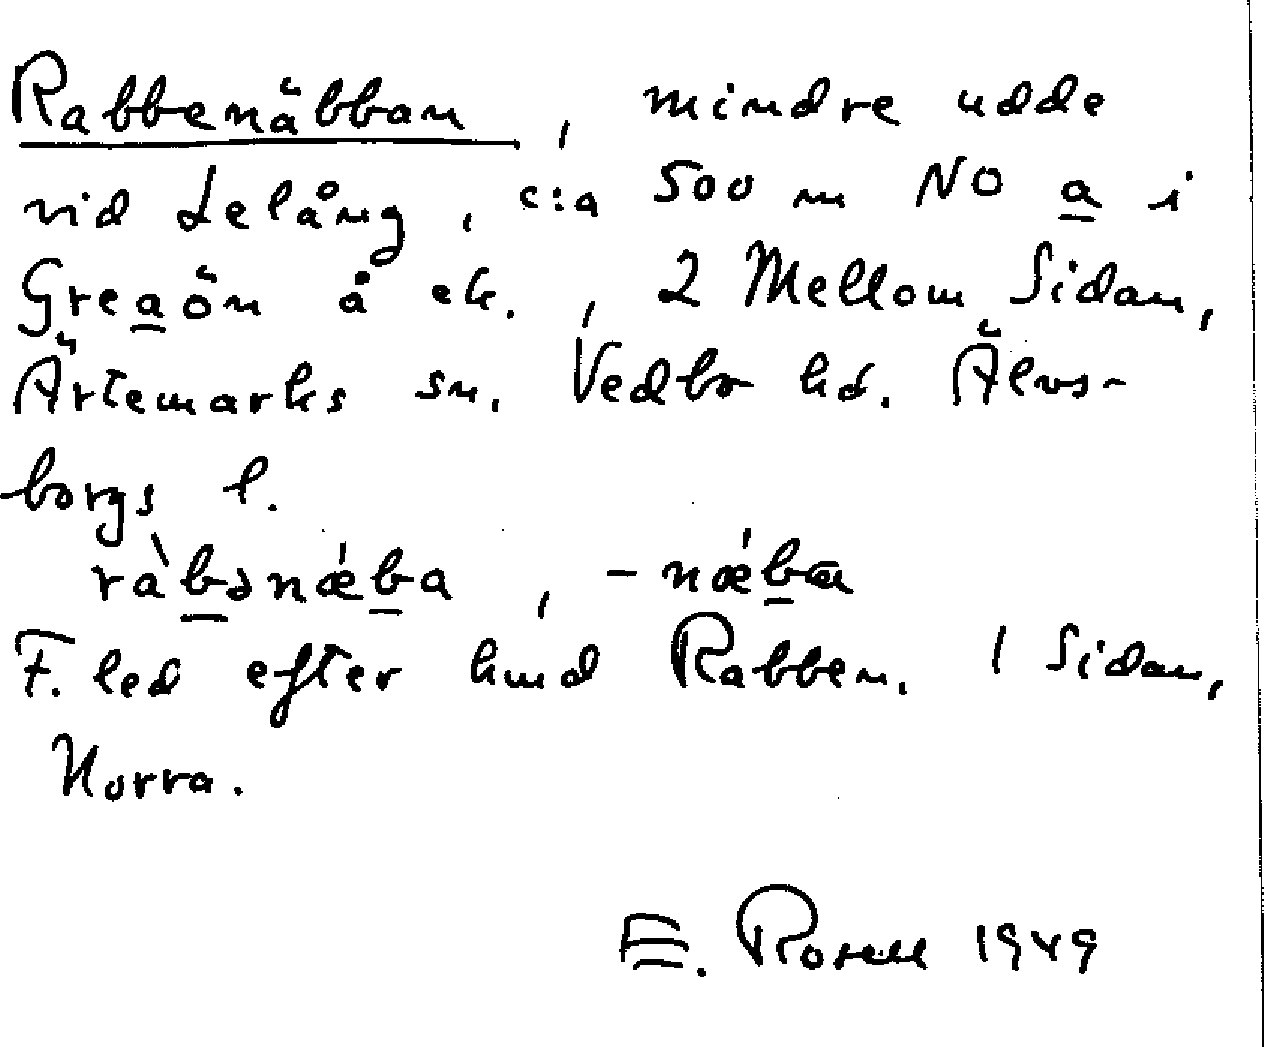 Rabbenäbban, mindre udde
vid Lelång, c:a 500 m NO a i
Greaön å ek., 2 Mellom Sidan,
Ärtemarks sn. Vedbo hd. Älvs-
borgs l.
ràbənǽba, -nǽba
F. led efter hmd Rabben. 1 Sidan,
Norra.
E. Rosell 1949